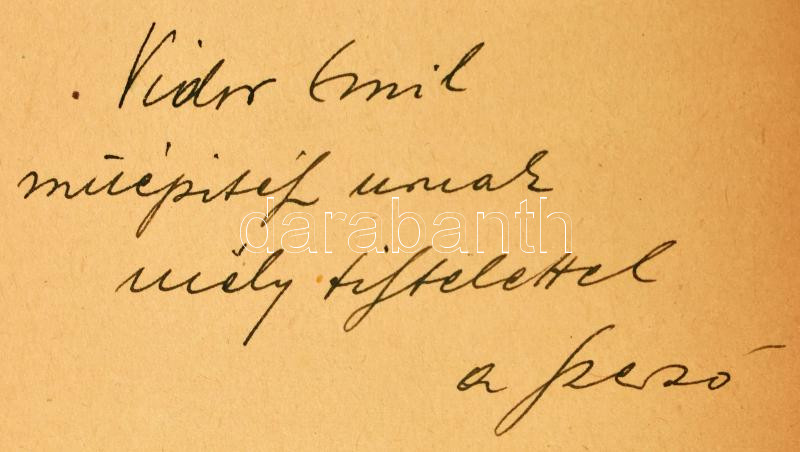 Vidor Emil
műépitész urnak
darabanth
mély tisztelettel
a szerző